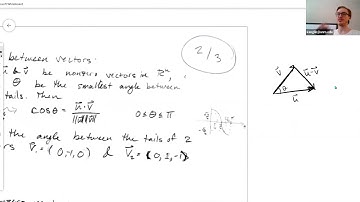 between vectors:
u⃗ & v⃗ be nonzero vectors in ℝⁿ,
θ be the smallest angle between
tails. Then
cosθ = u⃗·v⃗ / ||u⃗|| ||v⃗||   0≤θ≤π
the angle between the tails of 2
v⃗₁ = (0,-1,0) & v⃗₂ = (0,1,-1)
2/3
v⃗
u⃗-v⃗
θ
u⃗